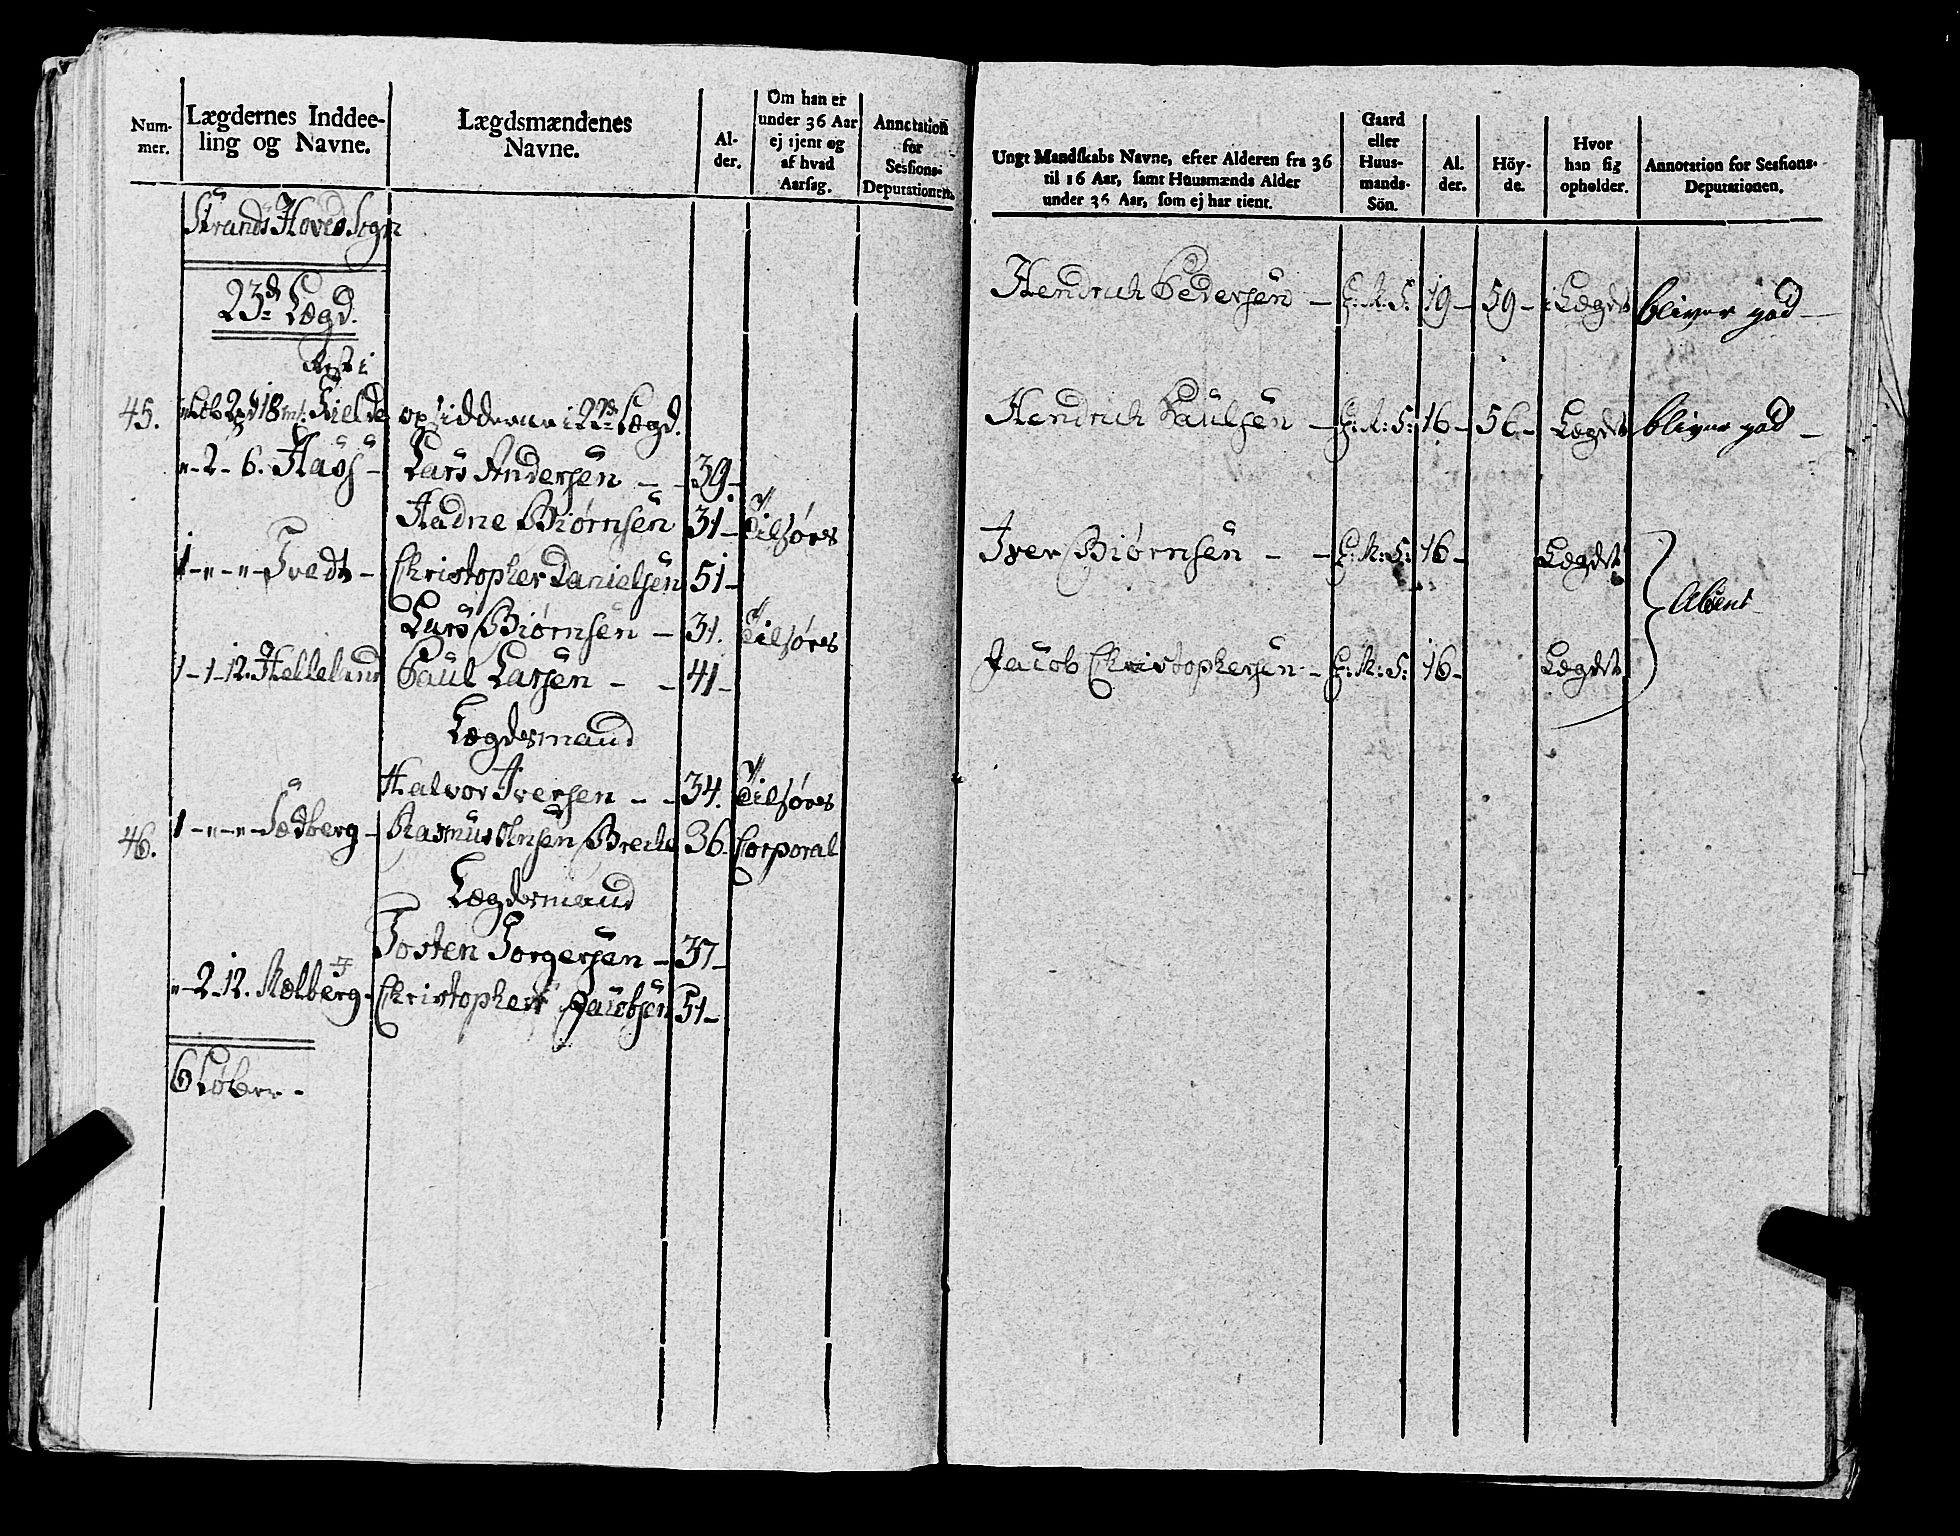 Num-
mer.
Lægdernes Inddee-
ling og Navne.
Lægdsmændenes
Navne.
Al-
der.
Om han er
under 36 Aar
ej tjent og
af hvad
Aarsag.
Annotation
for
Sessions-
Deputationen.
Strands Hoved Sogn
23de Lægd.
Rest i
45. Kielde opsidderne i 22de Lægd.
"-2-6. Haus - Lars Andersen - - 39-
Hadne Biørnsen 31- Tilsøes
1-"-"- Tvedt - Christopher Danielsen 51-
Lars Biørnsen - 31. Tilsøes
1-1-12. Helleland Paul Larsen - - 41-
Lægdsmand
Halvor Iversen - - 34. Tilsøes
46. 1-"-"- Sædberg - Rasmus Breche 36. Corporal
Lægdsmand
Tosten Torgersen - 37-
"-2-12. Mælberg. Christopher Jacobsen 51-
6 Løber -
Ungt Mandskabs Navne, efter Alderen fra 36
til 16 Aar, samt Huusmænds Alder
under 36 Aar, som ej har tient.
Gaard
eller
Huus-
mands-
Sön.
Al.
der.
Höy-
de.
Hvor
han sig
opholder.
Annotation for Sessions-
Deputationen.
Hendrich Pedersen - G: M: S: 19- 59- i Lægdet bliver god -
Hendrich Paulsen - G: M: S: 16- 56- Lægdet bliver god -
Iver Biørnsen - - G: M: S: 16- Lægdet
Absent
Jacob Christophersen - G: M: S: 16- Lægdet